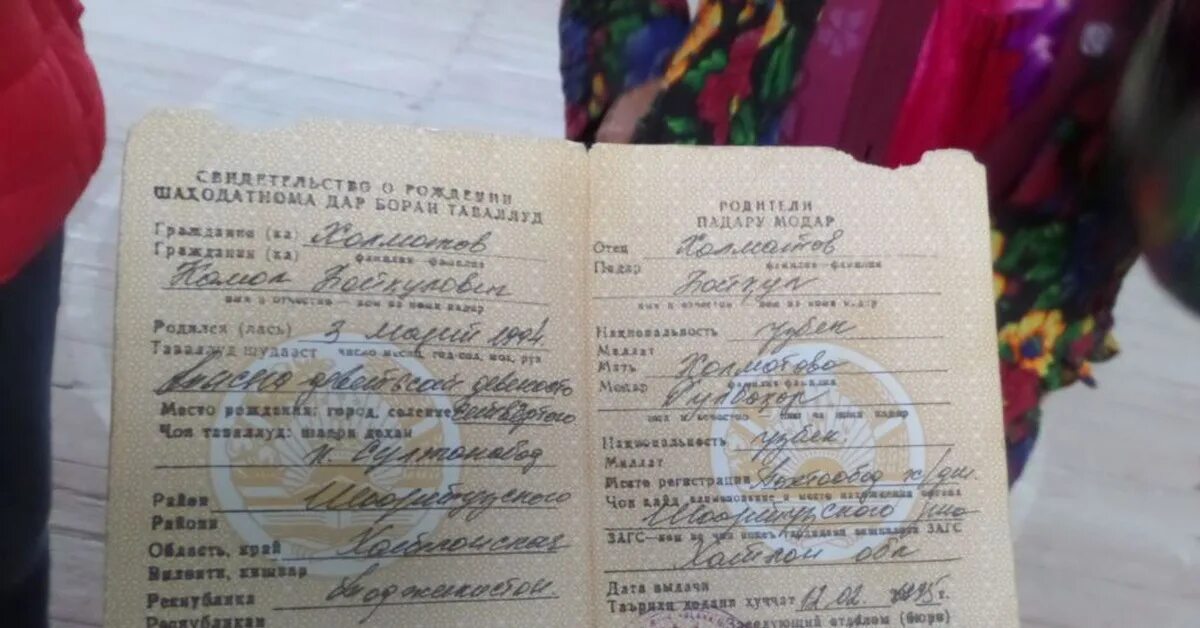 СВИДЕТЕЛЬСТВО О РОЖДЕНИИ
ШАҲОДАТНОМА ДАР БОРАИ ТАВАЛЛУД
Гражданин (ка) Холматов
Гражданин (ка) фамилия—фамилия
Камол Бойкулович
имя и отчество — ном ва номи падар
Родился (лась) 3 марта 1994
Таваллуд шудааст число, месяц, год—сол, моҳ, рӯз
тысяча девятьсот девяносто
Место рождения: город, селение четвёртого
Ҷои таваллуд: шаҳри деҳаи
к. Султонобод
Район Шаартузского
Райони
Область, край Хатлонская
Вилояти, кишвар
Республика Таджикистон
Республикаи
РОДИТЕЛИ
ПАДАРУ МОДАР
Отец Холматов
Падар фамилия—фамилия
Бойкул
имя и отчество — ном ва номи падар
Национальность узбек
Миллат
Мать Холматова
Модар фамилия—фамилия
Гулбахор
имя и отчество — ном ва номи падар
Национальность узбек.
Миллат
Место регистрации
Ҷои қайд наименование и место нахождения органа
Шаартузского
ЗАГС—
Хатлон обл
Дата выдачи
Таърихи додани ҳуҷҷат 12.02. 1995г.
отделом (бюро)